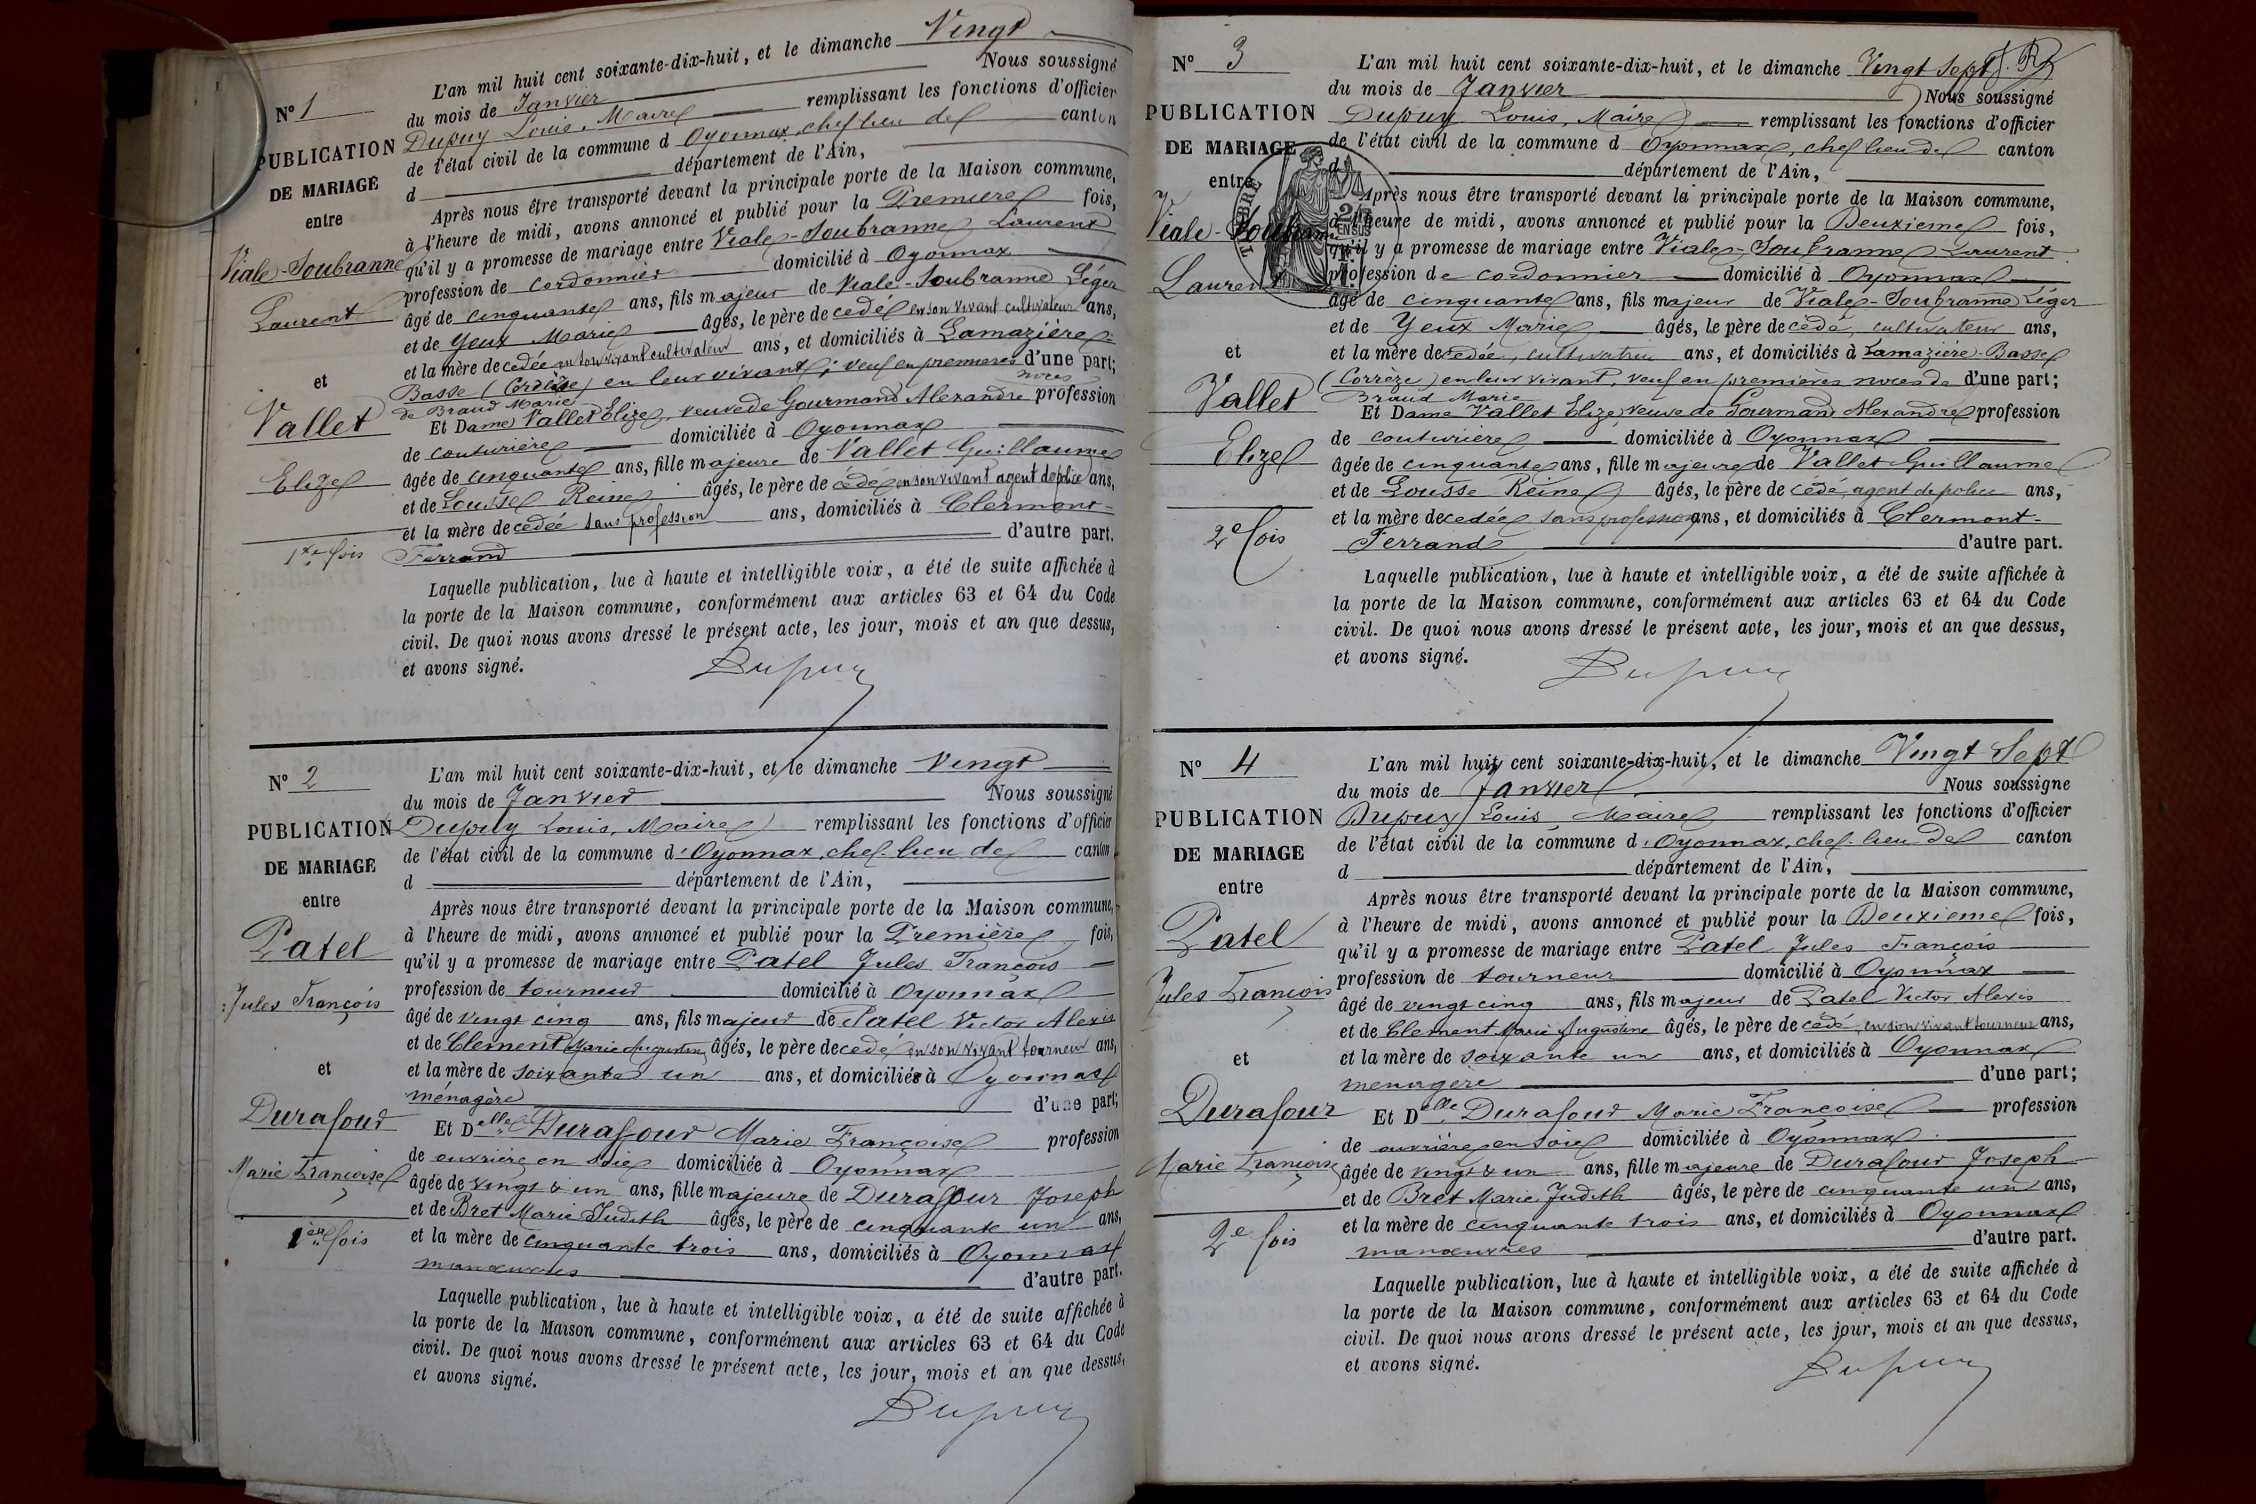 N° 1
PUBLICATION
DE MARIAGE
entre
Viale-Soubranne
Laurent
et
Vallet
Elize
1re fois
L'an mil huit cent soixante-dix-huit, et le dimanche Vingt
du mois de Janvier Nous soussigné
Dupuy Louis, Maire remplissant les fonctions d'officier
de l'état civil de la commune d Oyonnax, chef lieu de canton
d département de l'Ain,
Après nous être transporté devant la principale porte de la Maison commune,
à l'heure de midi, avons annoncé et publié pour la Premiere fois,
qu'il y a promesse de mariage entre Viale-Soubranne Laurent
profession de cordonnier domicilié à Oyonnax
âgé de cinquante ans, fils majeur de Viale-Soubranne Léger
et de Yeux Marie âgés, le père de cedé en son vivant cultivateur ans,
et la mère de cedée en son vivant cultivateur ans, et domiciliés à Lamazière-
Basse (Corrèze) en leur vivant, veuf en premieres noces d'une part;
de Braud Marie
Et Dame Vallet Elize, veuve de Gourmand Alexandre profession
de couturière domiciliée à Oyonnax
âgée de cinquante ans, fille majeure de Vallet Guillaume
et de Lousse Reine âgés, le père de cédé en son vivant agent de police ans,
et la mère de cedée sans profession ans, domiciliés à Clermont-
Ferrand d'autre part.
Laquelle publication, lue à haute et intelligible voix, a été de suite affichée à
la porte de la Maison commune, conformément aux articles 63 et 64 du Code
civil. De quoi nous avons dressé le présent acte, les jour, mois et an que dessus,
et avons signé.
Dupuy
N° 2
PUBLICATION
DE MARIAGE
entre
Patel
Jules François
et
Durafour
Marie Françoise
1ère fois
L'an mil huit cent soixante-dix-huit, et le dimanche Vingt
du mois de Janvier Nous soussigné
Dupuy Louis, Maire remplissant les fonctions d'officier
de l'état civil de la commune d'Oyonnax, chef-lieu de canton
d département de l'Ain,
Après nous être transporté devant la principale porte de la Maison commune,
à l'heure de midi, avons annoncé et publié pour la Première fois,
qu'il y a promesse de mariage entre Patel Jules François
profession de tourneur domicilié à Oyonnax
âgé de vingt cinq ans, fils majeur de Patel Victor Alexis
et de Clement Marie Augustine âgés, le père de cedé en son vivant tourneur ans,
et la mère de soixante un ans, et domiciliés à Oyonnax
ménagère d'une part;
Et Delle Durafour Marie Françoise profession
de ouvrière en soie domiciliée à Oyonnax
âgée de vingt & un ans, fille majeure de Durafour Joseph
et de Bret Marie Judith âgés, le père de cinquante un ans,
et la mère de cinquante trois ans, domiciliés à Oyonnax
manœuvres d'autre part.
Laquelle publication, lue à haute et intelligible voix, a été de suite affichée à
la porte de la Maison commune, conformément aux articles 63 et 64 du Code
civil. De quoi nous avons dressé le présent acte, les jour, mois et an que dessus,
et avons signé.
Dupuy
N° 3
PUBLICATION
DE MARIAGE
entre
Viale-Soubranne
Laurent
et
Vallet
Elize
2e fois
L'an mil huit cent soixante-dix-huit, et le dimanche Vingt Sept
du mois de Janvier Nous soussigné
Dupuy Louis, Maire remplissant les fonctions d'officier
de l'état civil de la commune d Oyonnax, chef lieu de canton
d département de l'Ain,
Après nous être transporté devant la principale porte de la Maison commune,
à l'heure de midi, avons annoncé et publié pour la Deuxieme fois,
qu'il y a promesse de mariage entre Viale-Soubranne Laurent
profession de cordonnier domicilié à Oyonnax
âgé de cinquante ans, fils majeur de Viale-Soubranne Léger
et de Yeux Marie âgés, le père de cédé, cultivateur ans,
et la mère de cedée, cultivatrice ans, et domiciliés à Lamazière-Basse
(Corrèze) en leur vivant, veuf en premières noces de d'une part;
Braud Marie
Et Dame Vallet Elize, veuve de Gourmand Alexandre profession
de couturière domiciliée à Oyonnax
âgée de cinquante ans, fille majeure de Vallet Guillaume
et de Lousse Reine âgés, le père de cédé, agent de police ans,
et la mère de cedée sans profession ans, et domiciliés à Clermont-
Ferrand d'autre part.
Laquelle publication, lue à haute et intelligible voix, a été de suite affichée à
la porte de la Maison commune, conformément aux articles 63 et 64 du Code
civil. De quoi nous avons dressé le présent acte, les jour, mois et an que dessus,
et avons signé.
Dupuy
N° 4
PUBLICATION
DE MARIAGE
entre
Patel
Jules François
et
Durafour
Marie Françoise
2e fois
L'an mil huit cent soixante-dix-huit, et le dimanche Vingt Sept
du mois de Janvier Nous soussigné
Dupuy Louis Maire remplissant les fonctions d'officier
de l'état civil de la commune d'Oyonnax, chef-lieu de canton
d département de l'Ain,
Après nous être transporté devant la principale porte de la Maison commune,
à l'heure de midi, avons annoncé et publié pour la Deuxieme fois,
qu'il y a promesse de mariage entre Patel Jules François
profession de tourneur domicilié à Oyonnax
âgé de vingt cinq ans, fils majeur de Patel Victor Alexis
et de Clement Marie Augustine âgés, le père de cédé, en son vivant tourneur ans,
et la mère de soixante un ans, et domiciliés à Oyonnax
menagère d'une part;
Et Delle Durafour Marie Françoise profession
de ouvrière en soie domiciliée à Oyonnax
âgée de vingt & un ans, fille majeure de Durafour Joseph
et de Bret Marie Judith âgés, le père de cinquante un ans,
et la mère de cinquante trois ans, et domiciliés à Oyonnax
manœuvres d'autre part.
Laquelle publication, lue à haute et intelligible voix, a été de suite affichée à
la porte de la Maison commune, conformément aux articles 63 et 64 du Code
civil. De quoi nous avons dressé le présent acte, les jour, mois et an que dessus,
et avons signé.
Dupuy